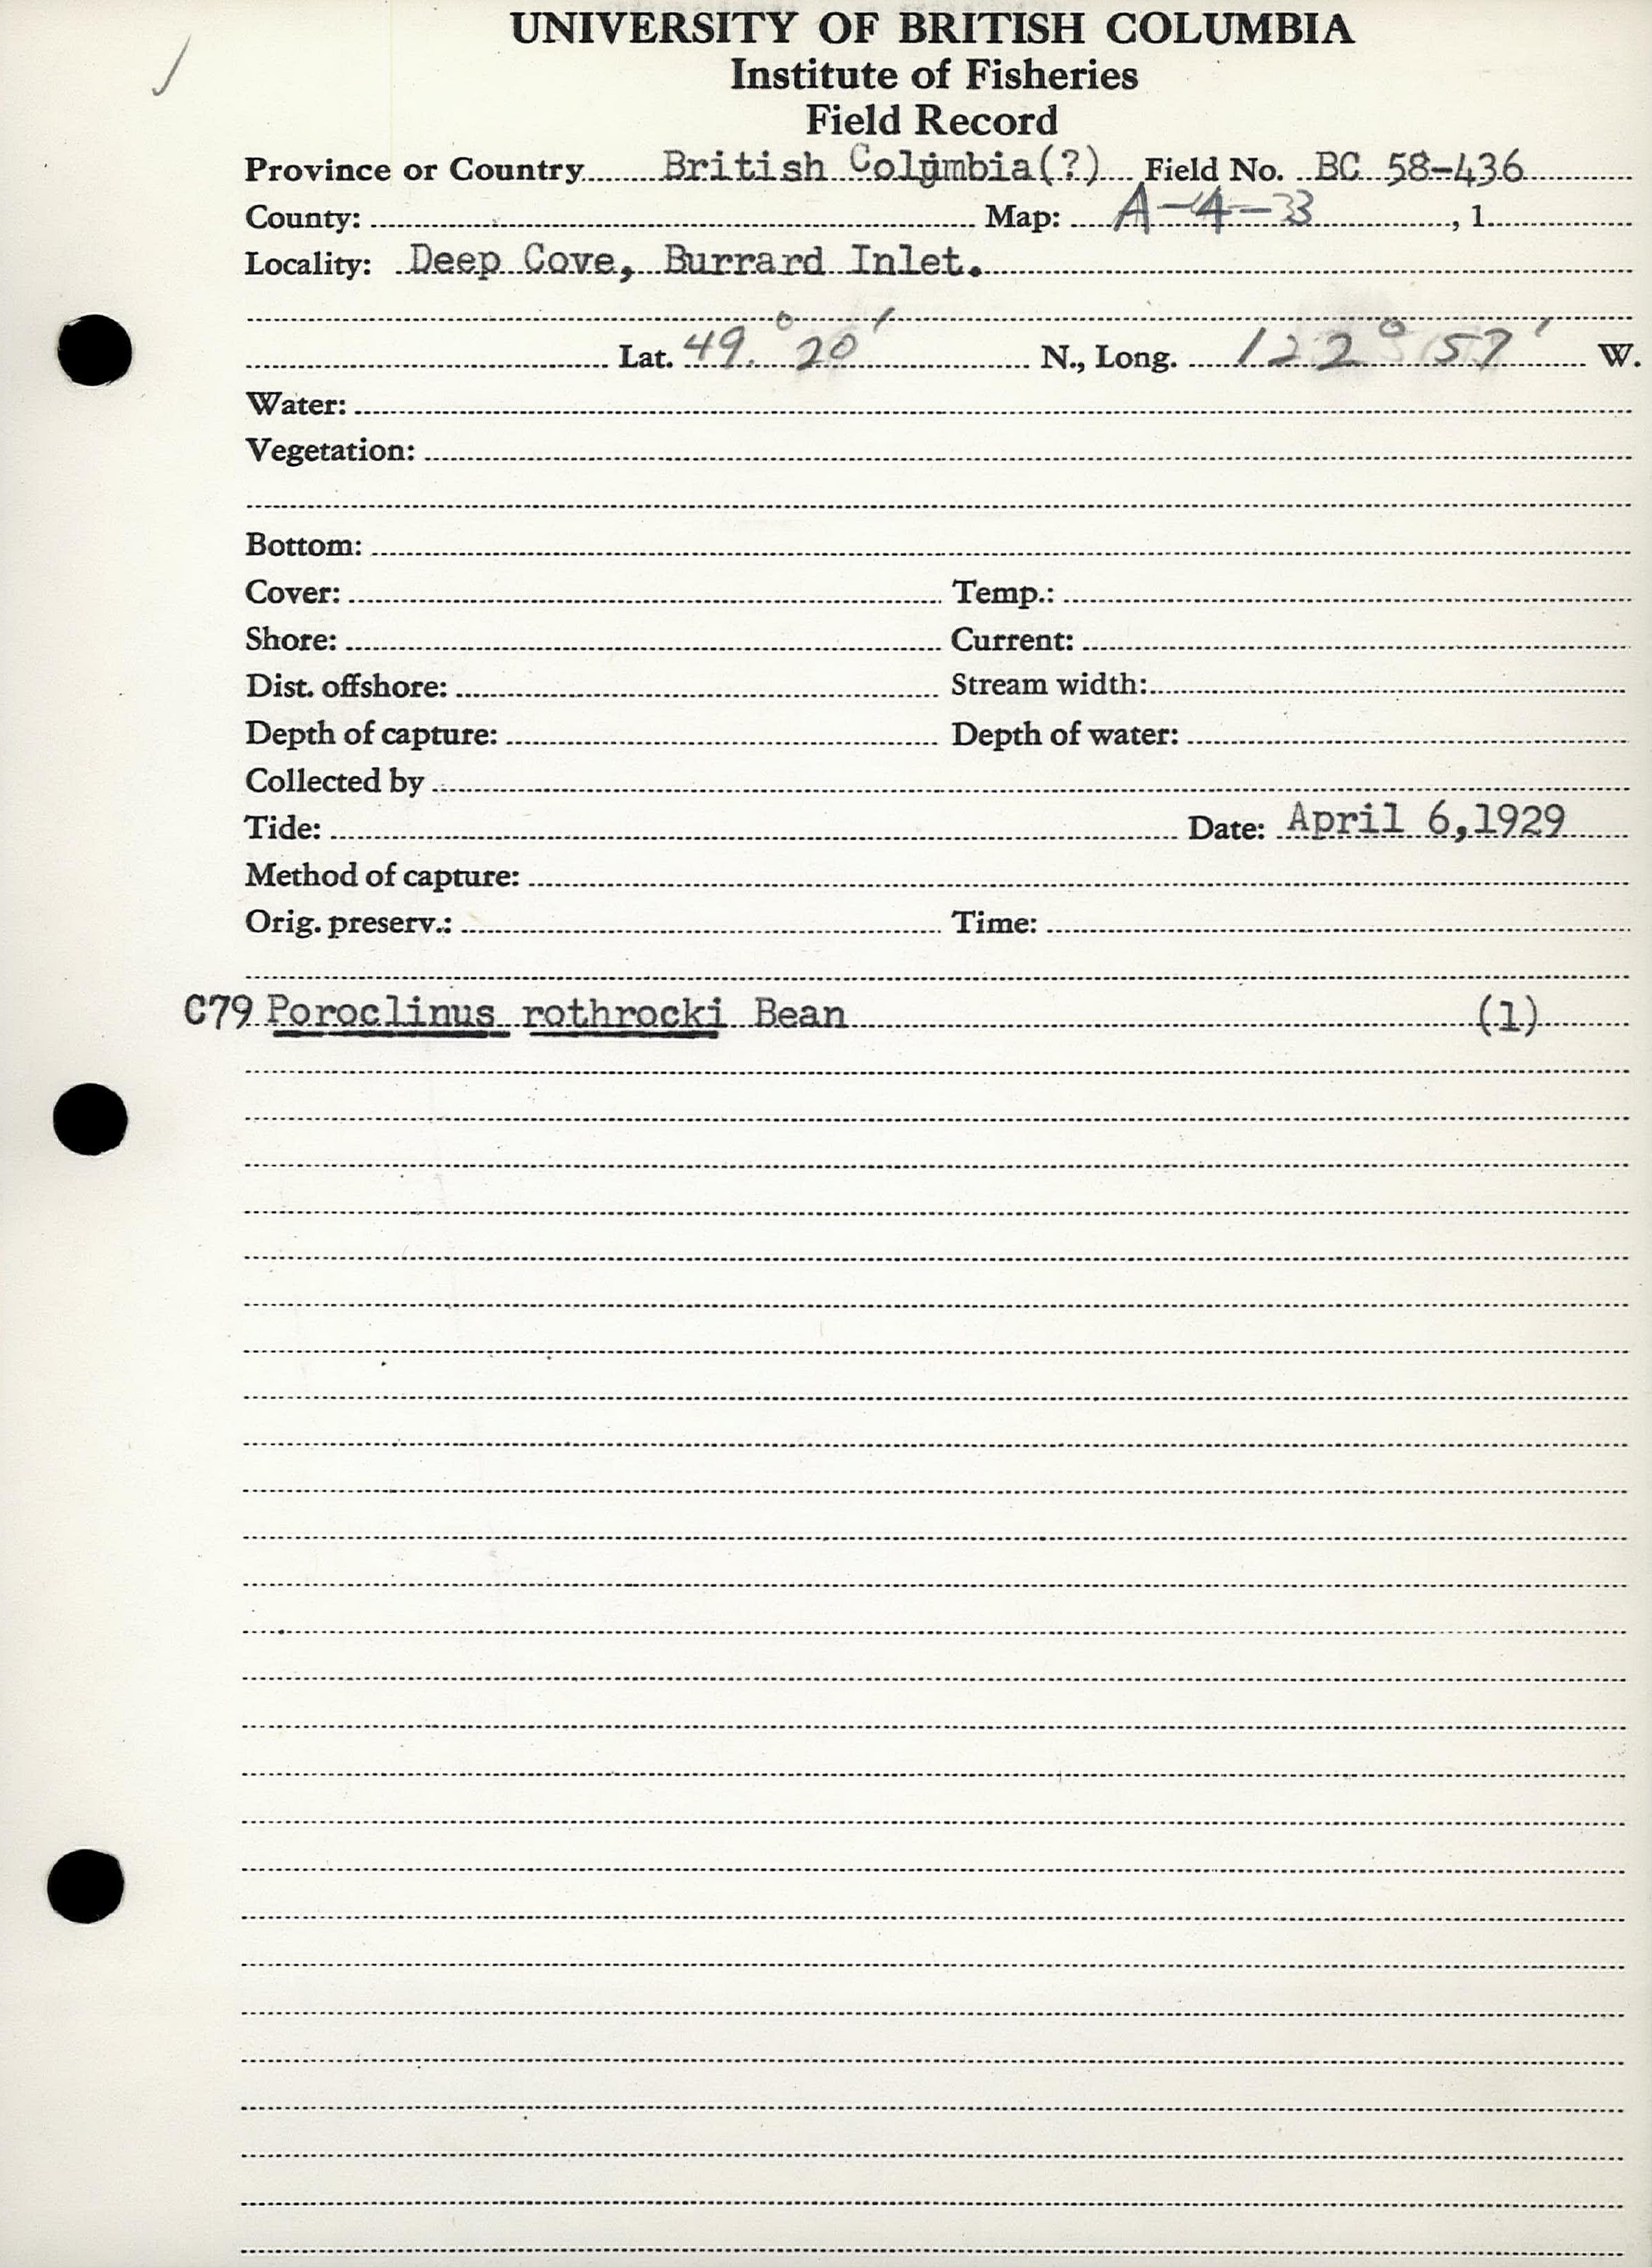 UNIVERSITY OF BRITISH COLUMBIA
Institute of Fisheries
Field Record
Province or Country British Columbia(?) Field No. BC 58-436
County: Map: A-4-33, 1
Locality: Deep Cove, Burrard Inlet.
Lat. 49.° 20' N., Long. 122° 57' W.
Water:
Vegetation:
Bottom:
Cover: Temp.:
Shore: Current:
Dist. offshore: Stream width:
Depth of capture: Depth of water:
Collected by
Tide: Date: April 6,1929
Method of capture:
Orig. preserv.: Time:
C79 Poroclinus rothrocki Bean (1)